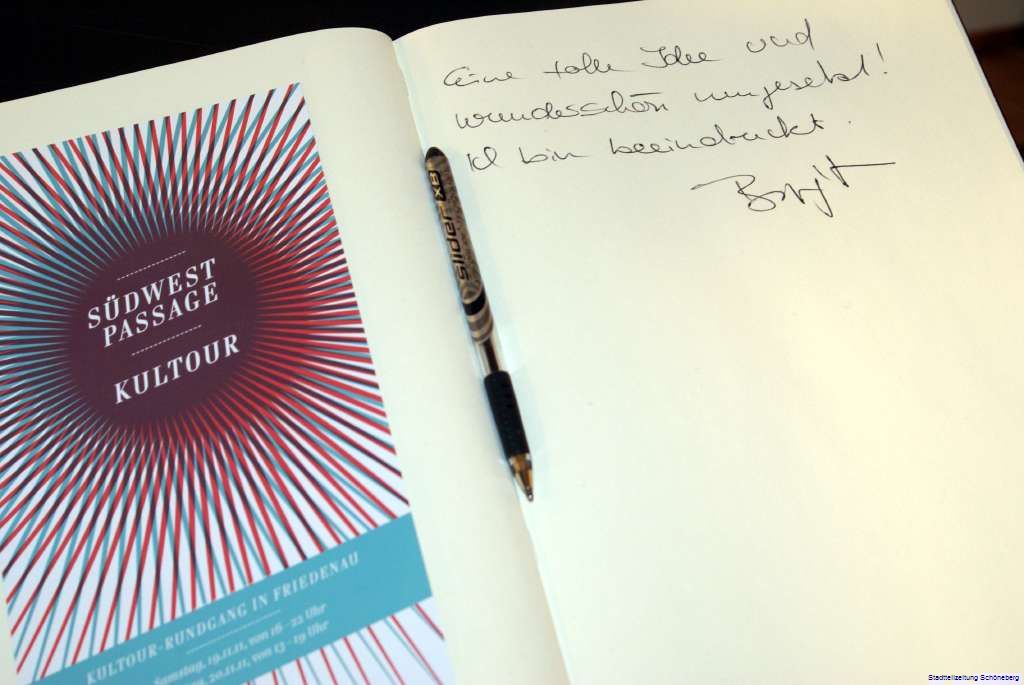 SÜDWEST
PASSAGE
KULTOUR
KULTOUR-RUNDGANG IN FRIEDENAU
Samstag, 19.11.11, von 16 - 22 Uhr
20.11.11, von 13 - 19 Uhr
slider xB
Eine tolle Idee und
wunderschön umgesetzt!
Ich bin beeindruckt.
Birgit
Stadtteilzeitung Schöneberg